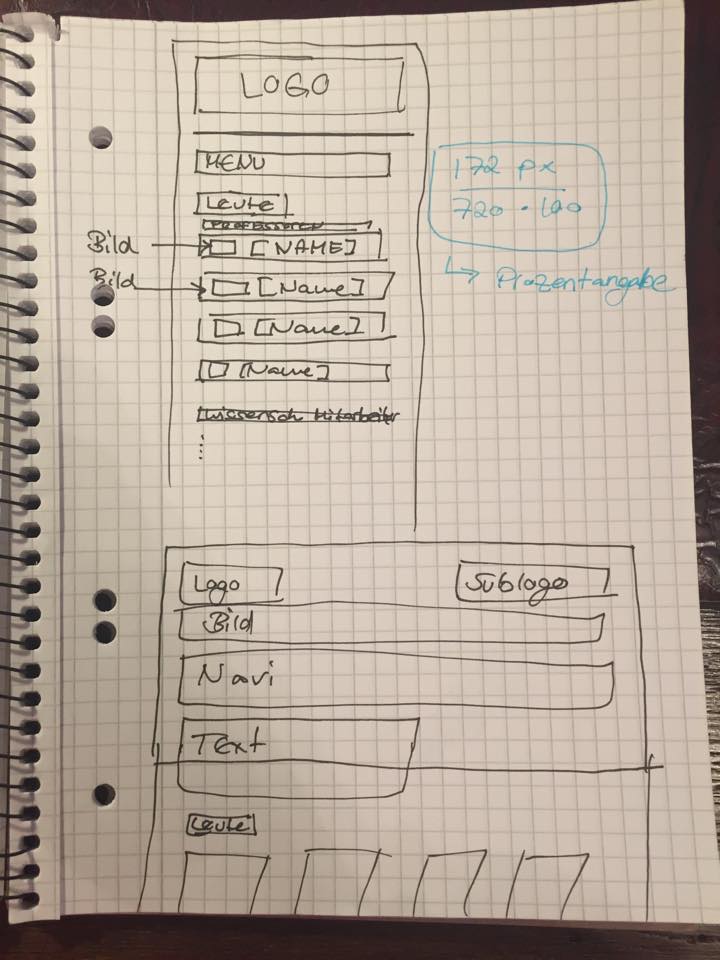 LOGO
MENU
Leute
PROFESSOREN
Bild [NAME]
Bild [Name]
[Name]
[Name]
Wissensch Mitarbeiter
...
172 px
720 · 100
↳ Prozentangabe
Logo
Sublogo
Bild
Navi
Text
Leute